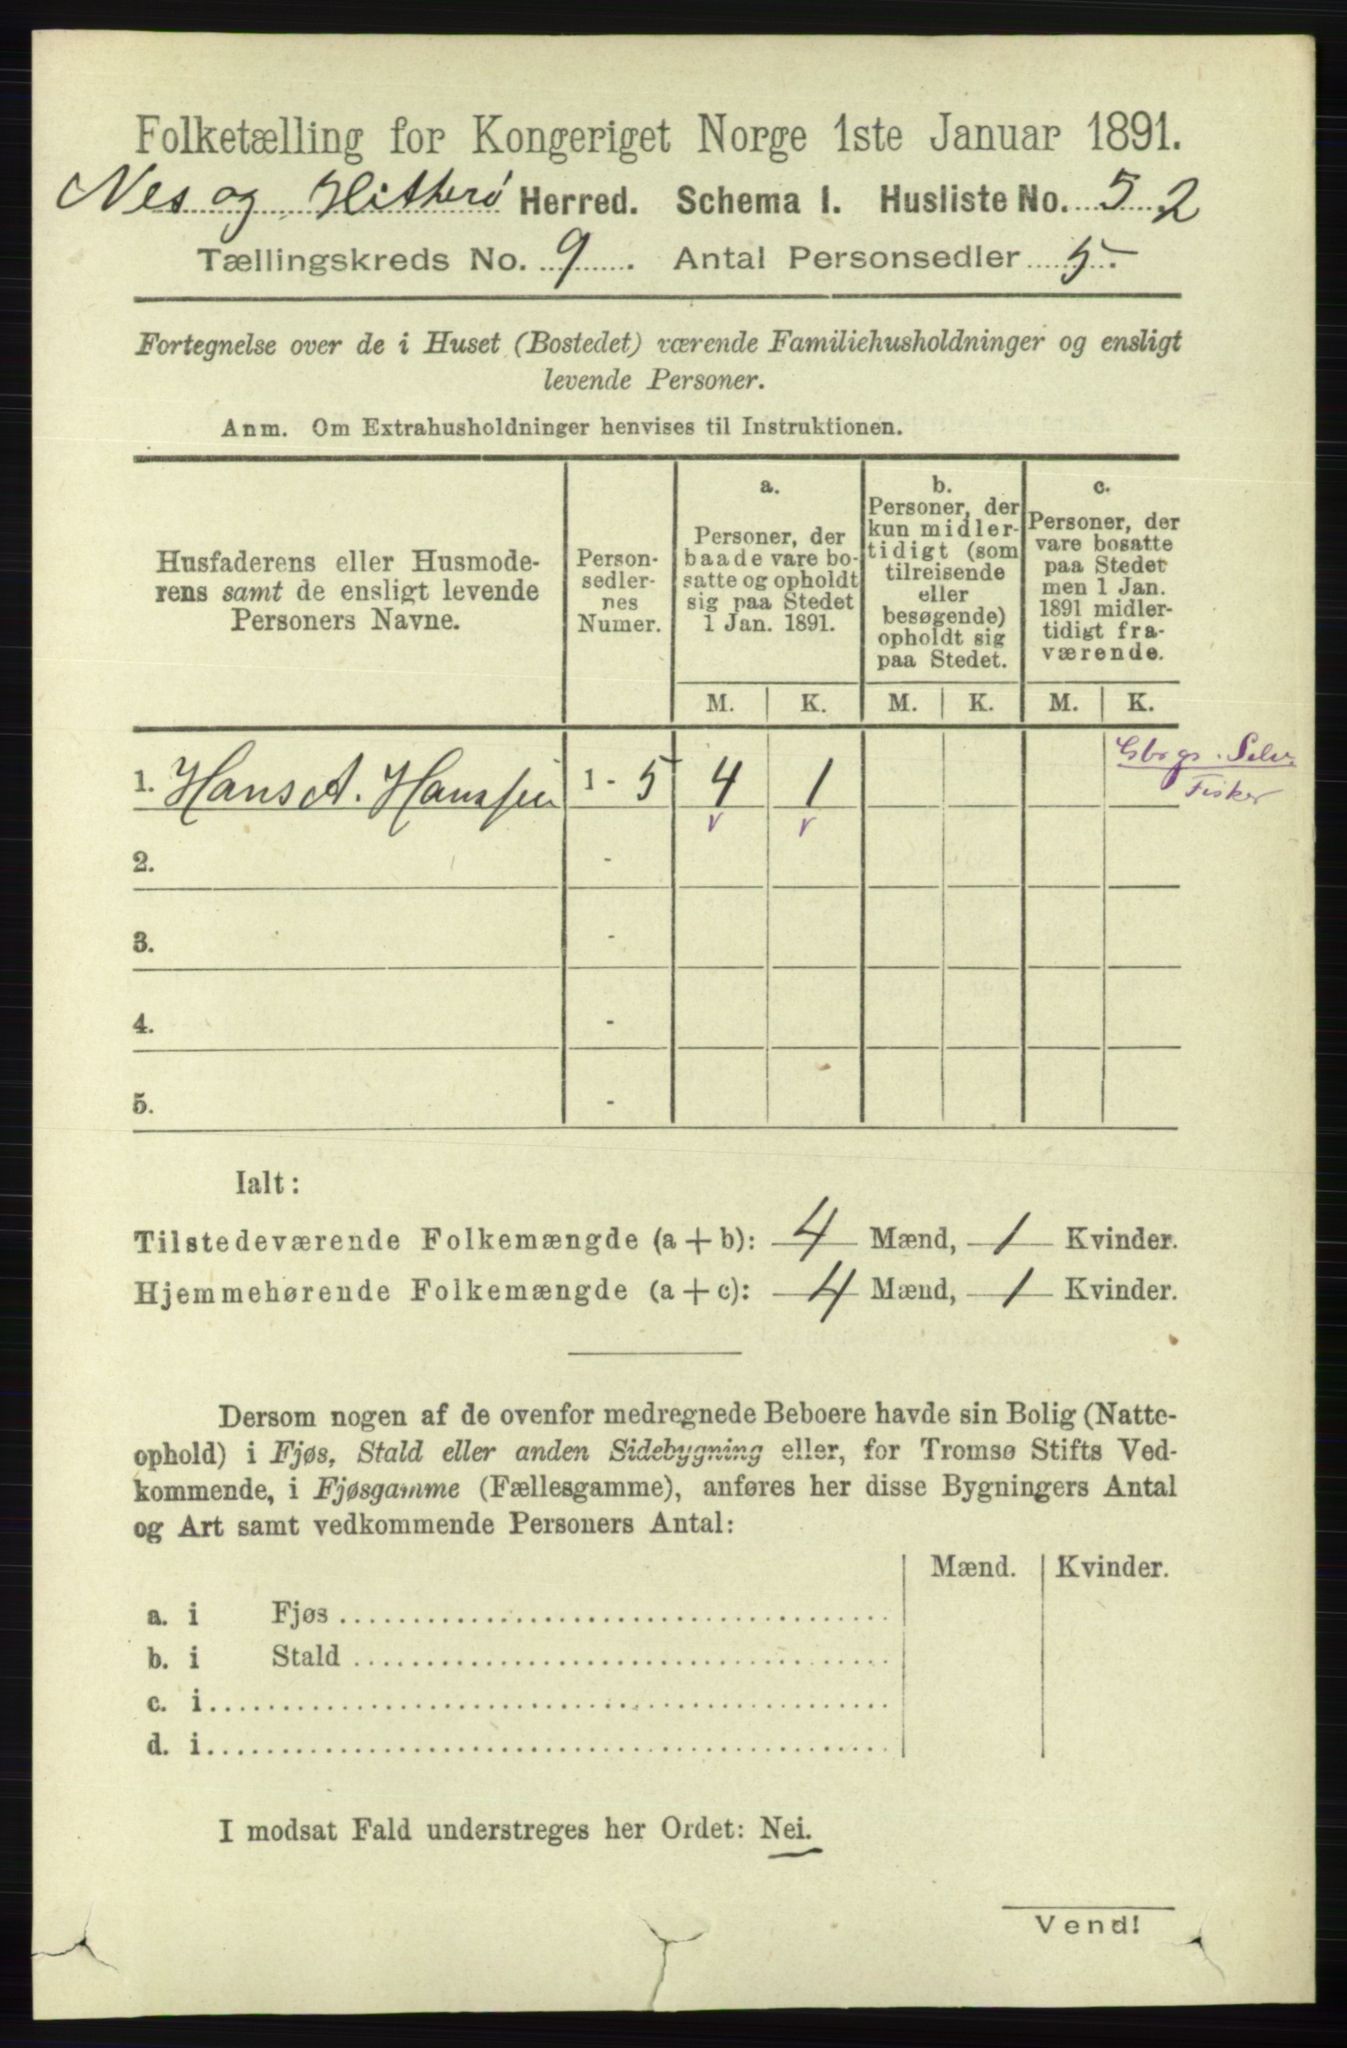 Folketælling for Kongeriget Norge 1ste Januar 1891.
Nes og Hitterø Herred. Schema I. Husliste No. 52
Tællingskreds No. 9. Antal Personsedler 5.
Fortegnelse over de i Huset (Bostedet) værende Familiehusholdninger og ensligt
levende Personer.
Anm. Om Extrahusholdninger henvises til Instruktionen.
Husfaderens eller Husmode-
rens samt de ensligt levende
Personers Navne.
Person-
sedler-
nes
Numer.
a.
Personer, der
baade vare bo-
satte og opholdt
sig paa Stedet
1 Jan. 1891.
b.
Personer, der
kun midler-
tidigt (som
tilreisende
eller
besøgende)
opholdt sig
paa Stedet.
c.
Personer, der
vare bosatte
paa Stedet
men 1 Jan.
1891 midler-
tidigt fra-
værende.
M. K. M. K. M. K.
1. Hans A. Hanssen 1 - 5 4 1
Gbrgs. Selv
Fisker
2. -
3. -
4. -
5. -
Ialt:
Tilstedeværende Folkemængde (a + b): 4 Mænd, 1 Kvinder.
Hjemmehørende Folkemængde (a + c): 4 Mænd, 1 Kvinder.
Dersom nogen af de ovenfor medregnede Beboere havde sin Bolig (Natte-
ophold) i Fjøs, Stald eller anden Sidebygning eller, for Tromsø Stifts Ved-
kommende, i Fjøsgamme (Fællesgamme), anføres her disse Bygningers Antal
og Art samt vedkommende Personers Antal:
Mænd. Kvinder.
a. i Fjøs
b. i Stald
c. i
d. i
I modsat Fald understreges her Ordet: Nei.
Vend!